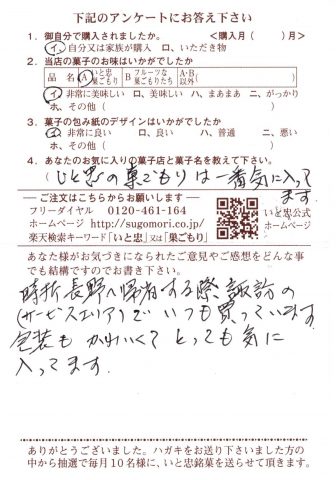 下記のアンケートにお答え下さい
1. 御自分で購入されましたか。 <購入月( )月>
イ、自分又は家族が購入 ロ、いただき物
2. 当店の菓子のお味はいかがでしたか
品名 A いと忠巣ごもり B フルーツな巣ごもりたち A・B以外( )
イ、非常に美味しい ロ、美味しい ハ、まあまあ ニ、がっかり
ホ、その他( )
3. 菓子の包み紙のデザインはいかがでしたか
イ、非常に良い ロ、良い ハ、普通 ニ、悪い
ホ、その他( )
4. あなたのお気に入りの菓子店と菓子名を教えて下さい。
(いと忠の巣ごもりは一番気に入って
ます
ご注文はこちらからお願いします
フリーダイヤル 0120-461-164
ホームページ http://sugomori.co.jp/
楽天検索キーワード「いと忠」又は「巣ごもり」
いと忠公式
ホームページ
あなた様がお気づきになられたご意見やご感想をどんな事
でも結構ですのでお書き下さい。
時折長野へ帰省する際諏訪の
(サービスエリア)でいつも買っています。
包装もかわいくてとっても気に
入ってます.
ありがとうございました。ハガキをお送り下さいました方の
中から抽選で毎月10名様に、いと忠銘菓を送らせて頂きます。